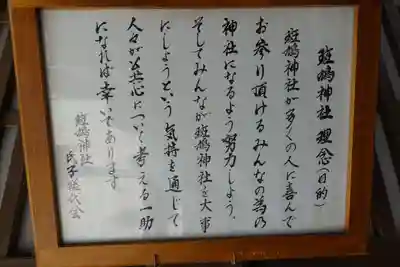 斑鳩神社 理念(目的)
斑鳩神社が多くの人に喜んで
お参り頂けるみんなの為の
神社になるよう努力しよう、
そしてみんなが斑鳩神社を大事
にしようという気持を通じて
人々が公共心について考える一助
になれば幸いであります
斑鳩神社
氏子総代会